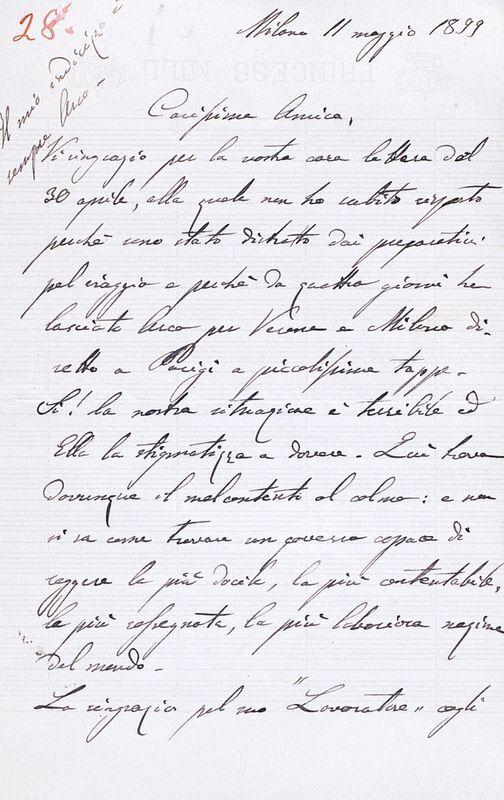 28.
Milano 11 maggio 1899
PRINCESS MILL
Il mio indirizzo è
sempre Arco -
Carissima Amica,
Vi ringrazio per la vostra cara lettera del
30 aprile, alla quale non ho subito risposto
perché sono stato distratto dai preparativi
pel viaggio e perché da quattro giorni ho
lasciato Arco per Verona e Milano di-
retto a Parigi a piccolissime tappe -
Si! la nostra situazione è terribile ed
Ella la stigmatizza a dovere - Qui trovo
dovunque il malcontento al colmo: e non
si sa come trovare un governo capace di
reggere la più docile, la più contentabile,
la più rassegnata, la più laboriosa nazione
del mondo -
La ringrazio pel suo "Lavoratore" cogli